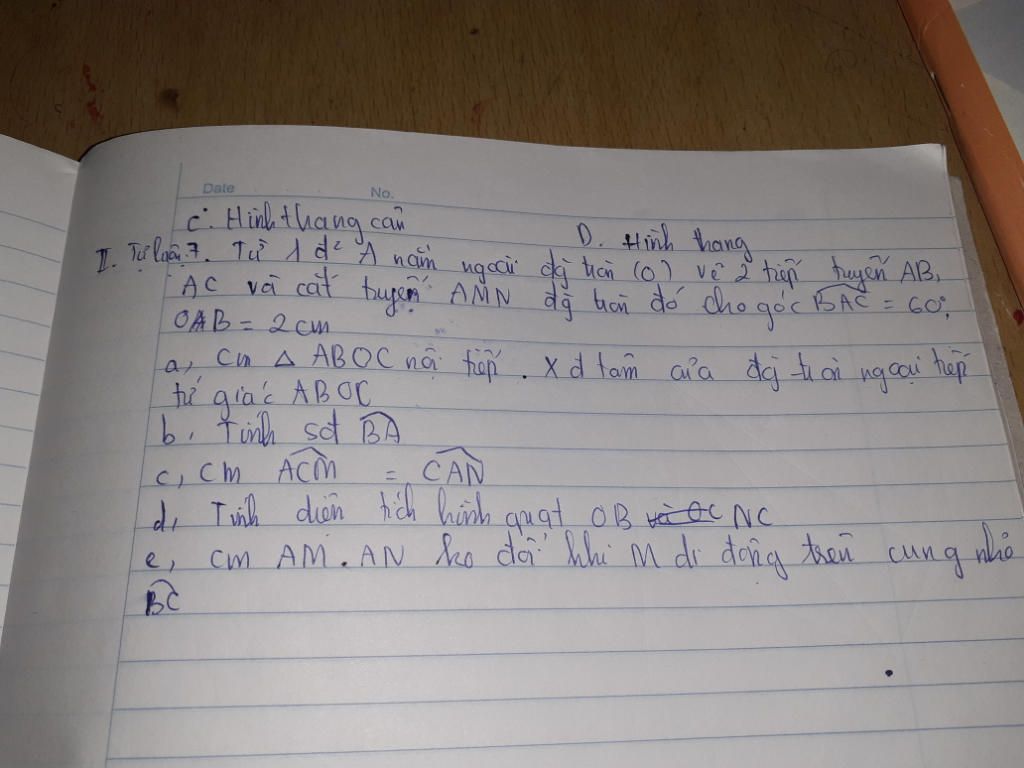 Date No.
C. Hình thang cân D. Hình thang
II. Tự luận. 7. Từ 1 đ² A nằm ngoài đg tròn (O) vẽ 2 tiếp tuyến AB,
AC và cát tuyến AMN đg tròn đó cho góc BAC = 60°,
OAB = 2 cm
a, Cm △ ABOC nội tiếp. Xđ tâm của đg tròn ngoại tiếp
tứ giác ABOC
b, Tính sđ BA
c, CM ACM = CAN
d, Tính diện tích hình quạt OB NC
e, cm AM.AN ko đổi khi M di động trên cung nhỏ
BC